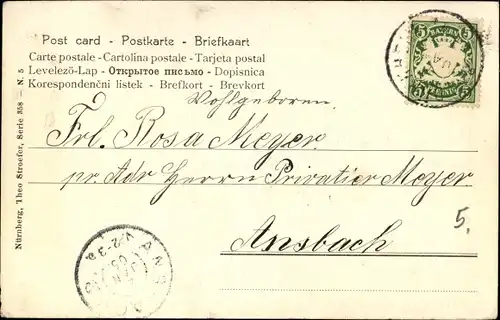 Post card - Postkarte - Briefkaart
Carte postale - Cartolina postale - Tarjeta postal
Levelező-Lap - Открытое письмо - Dopisnica
Korespondenční listek - Brefkort - Brevkort
BAYERN
5 5
5 PFENNIG 5
Wohlgeboren
Frl. Rosa Meyer,
pr. Adr Herrn Privatier Meyer
Ansbach
5.
Nürnberg, Theo Stroefer, Serie 358 - N. 5
ANSBACH